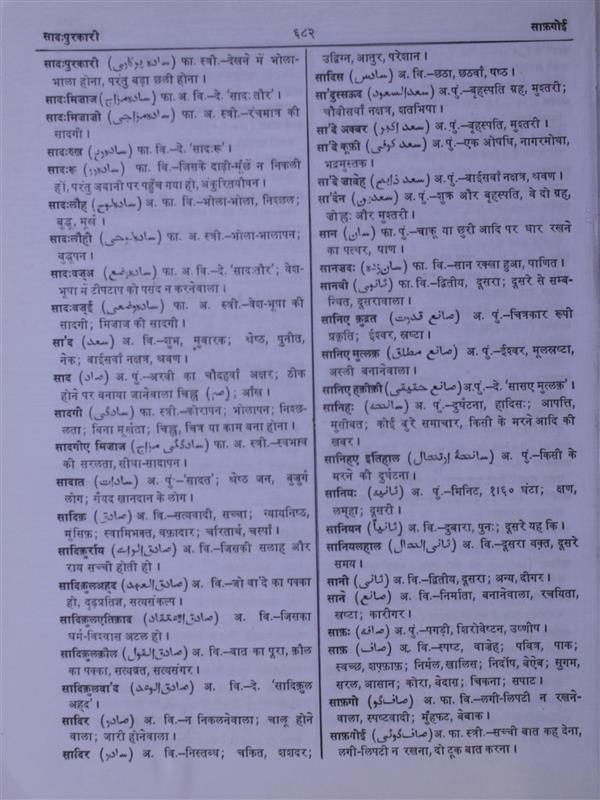 सादःपुरकारी
६८२
साफ़गोई
सादःपुरकारी (سادہ پرکاری) फा. स्त्री.-देखने में भोला-
भाला होना, परंतु बड़ा छली होना।
सादःमिज़ाज (سادہ مزاج) फा. अ. वि.-दे. 'सादः तौर'।
सादःमिज़ाजी (سادہ مزاجی) फा. अ. स्त्री.-रंचमात्र की
सादगी।
सादःरुख़ (سادہ رخ) फा. वि.-दे. 'सादःरू'।
सादःरू (سادہ رو) फा. वि.-जिसके दाढ़ी-मूंछें न निकली
हों, परंतु जवानी पर पहुँच गया हो, अंकुरितयौवन।
सादःलौह (سادہ لوح) अ. फा. वि.-भोला-भाला, निश्छल;
बुद्धू, मूर्ख।
सादःलौही (سادہ لوحی) फा. अ. स्त्री.-भोला-भालापन;
बुद्धूपन।
सादःवज़्अ (سادہ وضع) फा. अ. वि.-दे. 'सादःतौर'; वेश-
भूषा में टीपटाप को पसंद न करनेवाला।
सादःवज़्ई (سادہ وضعی) फा. अ. स्त्री.-वेश-भूषा की
सादगी; मिज़ाज की सादगी।
सा'द (سعد) अ. वि.-शुभ, मुबारक; श्रेष्ठ, पुनीत,
नेक; बाईसवाँ नक्षत्र, श्रवण।
साद (صاد) अ. पुं.-अरबी का चौदहवाँ अक्षर; ठीक
होने पर बनाया जानेवाला चिह्न (صـ); आँख।
सादगी (سادگی) फा. स्त्री.-कोरापन; भोलापन; निश्छ-
लता; बिना मूर्खता; चिह्न, चित्र या काम बना होना।
सादगीए मिज़ाज (سادگئی مزاج) फा. अ. स्त्री.-स्वभाव
की सरलता, सीधा-सादापन।
सादात (سادات) अ. पुं.-'सादत'; श्रेष्ठ जन, बुज़ुर्ग
लोग; सैयद खानदान के लोग।
सादिक़ (صادق) अ. वि.-सत्यवादी, सच्चा; न्यायनिष्ठ,
मुंसिफ़; स्वामिभक्त, वफ़ादार; चरितार्थ, चस्पाँ।
सादिक़ुर्राय (صادق الرائے) अ. वि.-जिसकी सलाह और
राय सच्ची होती हो।
सादिक़ुलअह्द (صادق العہد) अ. वि.-जो वा'दे का पक्का
हो, दृढ़प्रतिज्ञ, सत्यसंकल्प।
सादिक़ुलएतिक़ाद (صادق الاعتقاد) अ. वि.-जिसका
धर्म-विश्वास अटल हो।
सादिक़ुलक़ौल (صادق القول) अ. वि.-बात का पूरा, क़ौल
का पक्का, सत्यव्रत, सत्यसंगर।
सादिक़ुलवा'द (صادق الوعد) अ. वि.-दे. 'सादिक़ुल
अह्द'।
सादिर (صادر) अ. वि.-न निकलनेवाला; चालू होने
वाला; जारी होनेवाला।
सादिर (سادر) अ. वि.-निस्तब्ध; चकित, शशदर;
उद्विग्न, आतुर, परेशान।
सादिस (سادس) अ. वि.-छठा, छठवाँ, षष्ठ।
सा'दुस्सऊद (سعد السعود) अ. पुं.-बृहस्पति ग्रह, मुश्तरी;
चौबीसवाँ नक्षत्र, शतभिषा।
सा'दे अक्बर (سعد اکبر) अ. पुं.-बृहस्पति, मुश्तरी।
सा'दे कूफ़ी (سعد کوفی) अ. पुं.-एक ओषधि, नागरमोथा,
भद्रमुस्तक।
सा'दे ज़ाबेह (سعد ذابح) अ. पुं.-बाईसवाँ नक्षत्र, श्रवण।
सा'दैन (سعدین) अ. पुं.-शुक्र और बृहस्पति, ये दो ग्रह,
ज़ोह्रः और मुश्तरी।
सान (سان) फा. पुं.-चाकू या छुरी आदि पर धार रखने
का पत्थर, पाण।
सानज़दः (سان زدہ) फा. वि.-सान रक्खा हुआ, पाणित।
सानवी (ثانوی) फा. वि.-द्वितीय, दूसरा; दूसरे से सम्ब-
न्धित, दूसरावाला।
सानिए क़ुद्रत (صانع قدرت) अ. पुं.-चित्रकार रूपी
प्रकृति; ईश्वर, स्रष्टा।
सानिए मुत्लक़ (صانع مطلق) अ. पुं.-ईश्वर, मूलस्रष्टा,
अस्ली बनानेवाला।
सानिए हक़ीक़ी (صانع حقیقی) अ. पुं.-दे. 'सासए मुत्लक़'।
सानिहः (سانحہ) अ. पुं.-दुर्घटना, हादिसः; आपत्ति,
मुसीबत; कोई बुरे समाचार, किसी के मरने आदि की
ख़बर।
सानिहए इर्तिहाल (سانحۂ ارتحال) अ. पुं.-किसी के
मरने की दुर्घटना।
सानियः (ثانیہ) अ. पुं.-मिनिट, १।६० घंटा; क्षण,
लम्हा; दूसरी।
सानियन (ثانیاً) अ. वि.-दुबारा, पुनः; दूसरे यह कि।
सानियलहाल (ثانی الحال) अ. वि.-दूसरा वक़्त, दूसरे
समय।
सानी (ثانی) अ. वि.-द्वितीय, दूसरा; अन्य, दीगर।
साने (صانع) अ. वि.-निर्माता, बनानेवाला, रचयिता,
स्रष्टा; कारीगर।
साफ़ः (صافہ) अ. पुं.-पगड़ी, शिरोवेष्टन, उष्णीष।
साफ़ (صاف) अ. वि.-स्पष्ट, वाज़ेह; पवित्र, पाक;
स्वच्छ, शफ़्फ़ाफ़; निर्मल, ख़ालिस; निर्दोष, बेऐब; सुगम,
सरल, आसान; कोरा, बेदाग़; चिकना; सपाट।
साफ़गो (صاف گو) अ. फा. वि.-लगी-लिपटी न रखने-
वाला, स्पष्टवादी; मुँहफट, बेबाक।
साफ़गोई (صاف گوئی) अ. फा. स्त्री.-सच्ची बात कह देना,
लगी-लिपटी न रखना, दो टूक बात करना।